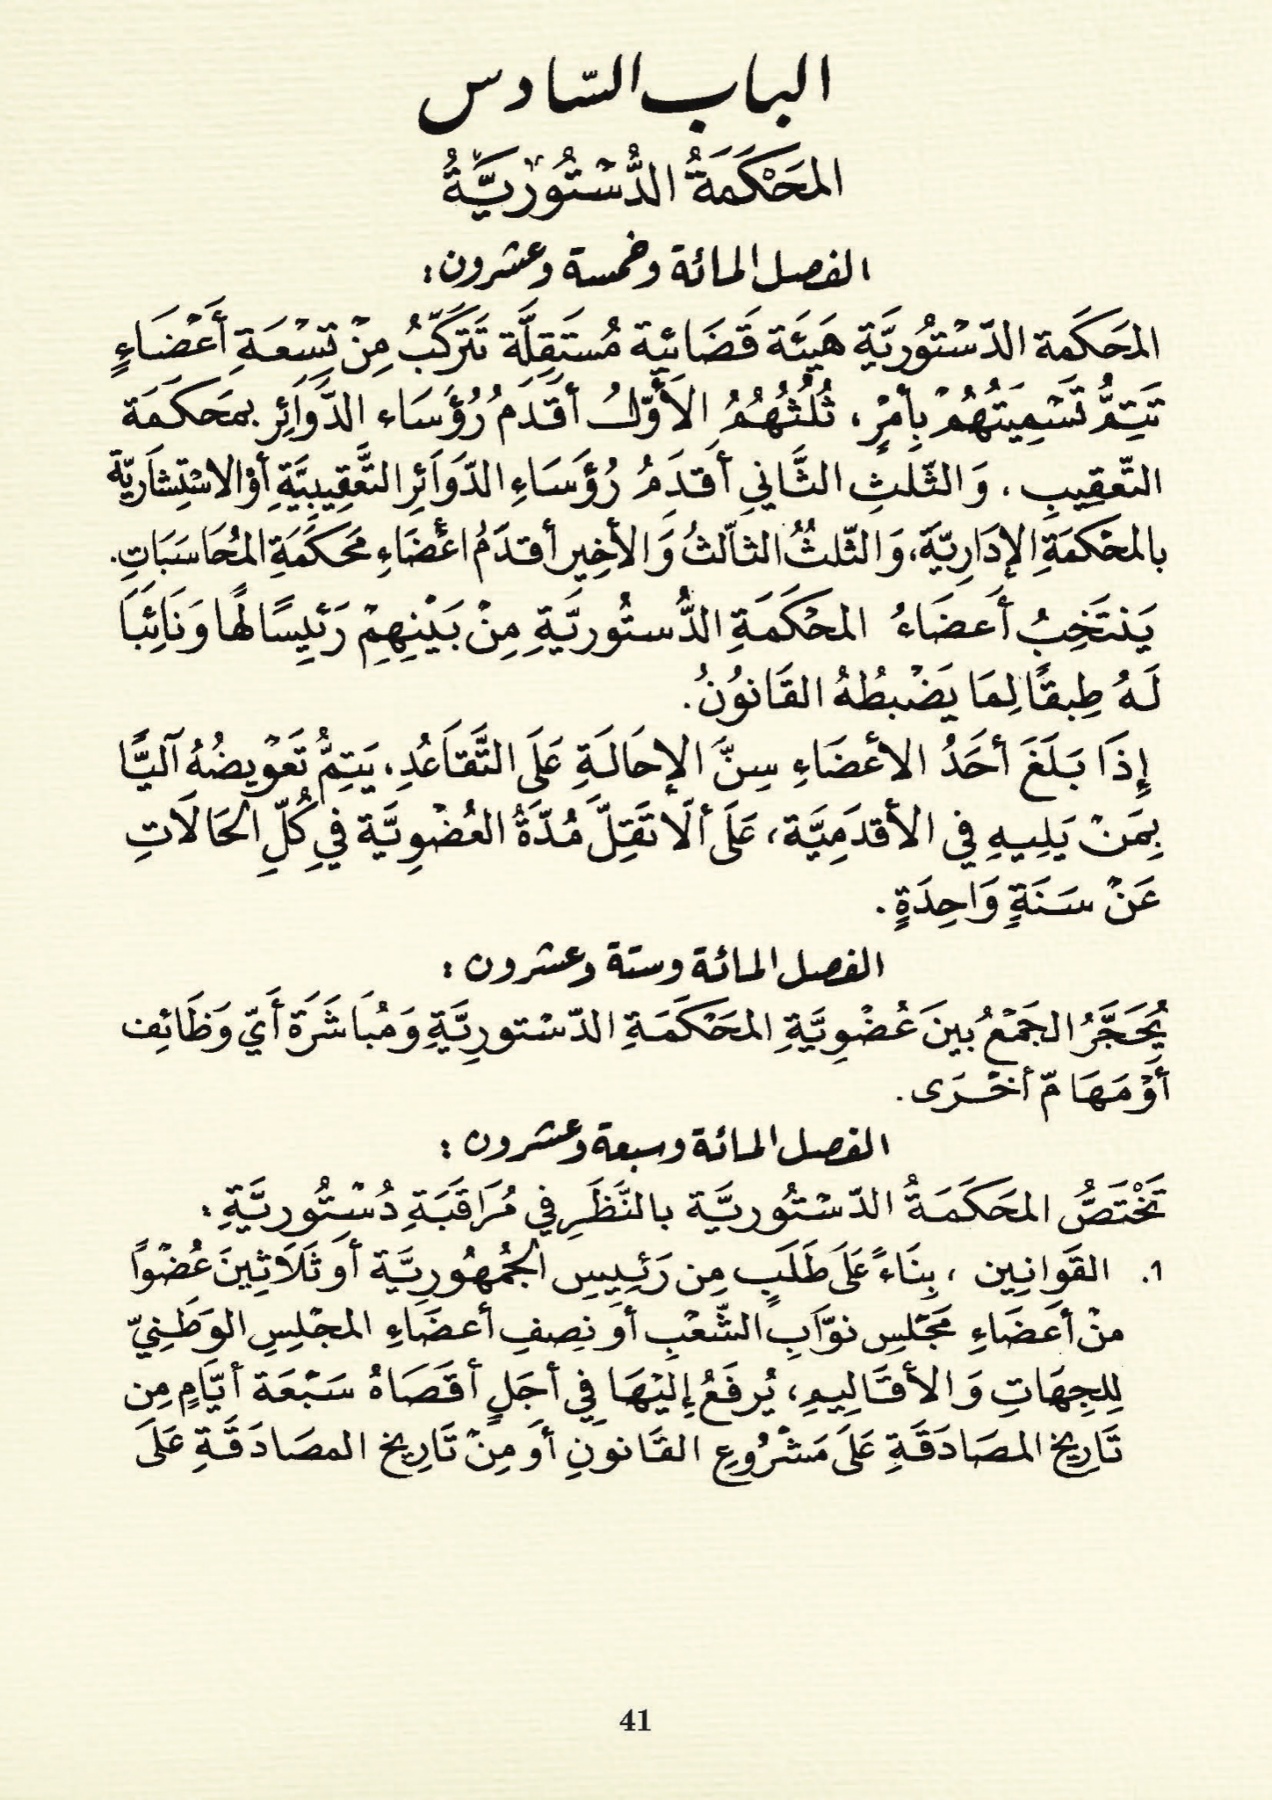 الباب السّادس
المَحْكَمَةُ الدُّسْتُورِيَّةُ
الفصل المائة وخمسة وعشرون:
المَحَكَمة الدّسْتُوريَّة هَيئَة قَضَائية مُستَقِلَّة تَتَركَّبُ مِنْ تِسْعَةِ أَعْضَاءٍ
تَتِمُّ تَسْمِيَتُهُمْ بِأمْرٍ، ثُلُثُهُمُ الأَوّلُ أقدَمُ رُؤَسَاء الدَّوَائِرِ بمَحَكَمَة
التّعقِيبِ، وَالثّلثِ الثَّاني أقدَمُ رُؤَسَاءِ الدّوَائِرِ التَّعْقِيبِيَّةِ أوْ الاسْتِشَاريّة
بالمَحْكَمَةِ الإدَارِيّةَ، وَالثّلثُ الثالّثُ وَالأخِير أقدَمُ اعْضَاءِ مَحكَمَةِ المُحَاسَبَاتِ.
يَنتَخِبُ أَعضَاءُ المَحْكَمَةِ الدُّستُوريَّةِ مِنْ بَيْنِهِمْ رَئِيسًا لهَا وَنَائِبًا
لَهُ طِبقًا لِمَا يَضْبِطُهُ القَانوُنُ.
إِذَا بَلَغَ أحَدُ الأعضَاءِ سِنَّ الإحَالَةِ عَلَى التَّقَاعُدِ، يَتِمُّ تَعْوِيضُهُ آليًّا
بِمَنْ يَلِيهِ في الأقدَمِيَّة، عَلَى ألَا تَقِلَّ مُدّةُ العُضْوِيَّة في كُلِّ الحَالَاتِ
عَنْ سَنَةٍ وَاحِدَةٍ.
الفصل المائة وستة وعشرون:
يُحَجَّرُ الجَمْعُ بينَ عُضْوِيَّةِ المَحَكَمَةِ الدّسْتوريَّةِ وَمُبَاشَرَة أَيّ وَظَائِف
أوْ مَهَامّ أخْرَى.
الفصل المائة وسبعة وعشرون:
تَخْتَصُّ المَحَكَمَةُ الدّسْتُوريَّة بالنَّظَرِ في مُرَاقَبَةِ دُسْتُوريَّةِ:
1. القَوانِين، بِنَاءً عَلَى طَلَبٍ مِن رَئِيسِ الجُمْهُورِيَّة أو ثَلَاثِينَ عُضْوًا
منْ أعَضَاءِ مَجْلسِ نوّابِ الشّعْبِ أو نِصفِ أعضَاءِ المجْلِسِ الوَطَنِيّ
لِلجِهَاتِ وَالأقَالِيمِ، يُرفَعُ إليْهَا فِي أجَلٍ أقصَاهُ سَبْعَة أيّامٍ مِن
تَاريخ المصَادَقَةِ عَلَى مَشْرُوعِ القَانونِ أو مِنْ تَاريخ المصَادَقَةِ عَلَى
41